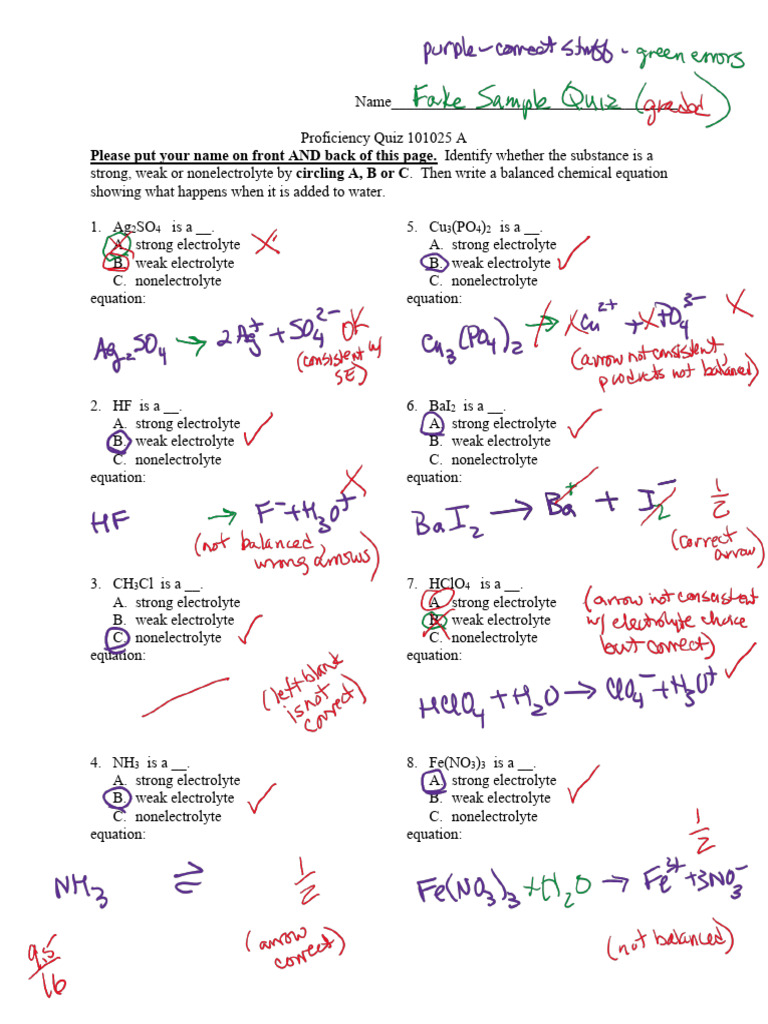 purple - correct stuff - green errors
Name Fake Sample Quiz (graded)
Proficiency Quiz 101025 A
Please put your name on front AND back of this page. Identify whether the substance is a
strong, weak or nonelectrolyte by circling A, B or C. Then write a balanced chemical equation
showing what happens when it is added to water.
1. Ag₂SO₄ is a __.
A. strong electrolyte
B. weak electrolyte
C. nonelectrolyte
equation:
Ag₂SO₄ → 2Ag⁺ + SO₄²⁻ OK
(consistent w/
SE)
2. HF is a __.
A. strong electrolyte
B. weak electrolyte
C. nonelectrolyte
equation:
HF → F⁻ + H₃O⁺
(not balanced,
wrong arrows)
3. CH₃Cl is a __.
A. strong electrolyte
B. weak electrolyte
C. nonelectrolyte
equation:
(left blank
is not
correct)
4. NH₃ is a __.
A. strong electrolyte
B. weak electrolyte
C. nonelectrolyte
equation:
NH₃ ⇌ 1/2
(arrow
correct)
9.5/16
5. Cu₃(PO₄)₂ is a __.
A. strong electrolyte
B. weak electrolyte
C. nonelectrolyte
equation:
Cu₃(PO₄)₂ → Cu²⁺ + PO₄³⁻
(arrow not consistent,
products not balanced)
6. BaI₂ is a __.
A. strong electrolyte
B. weak electrolyte
C. nonelectrolyte
equation:
BaI₂ → Ba⁺ + I₂⁻ 1/2
(correct
arrow)
7. HClO₄ is a __.
A. strong electrolyte
B. weak electrolyte
C. nonelectrolyte
equation:
(arrow not consistent
w/ electrolyte choice
but correct)
HClO₄ + H₂O → ClO₄⁻ + H₃O⁺
8. Fe(NO₃)₃ is a __.
A. strong electrolyte
B. weak electrolyte
C. nonelectrolyte
equation:
1/2
Fe(NO₃)₃ + H₂O → Fe³⁺ + 3NO₃⁻
(not balanced)